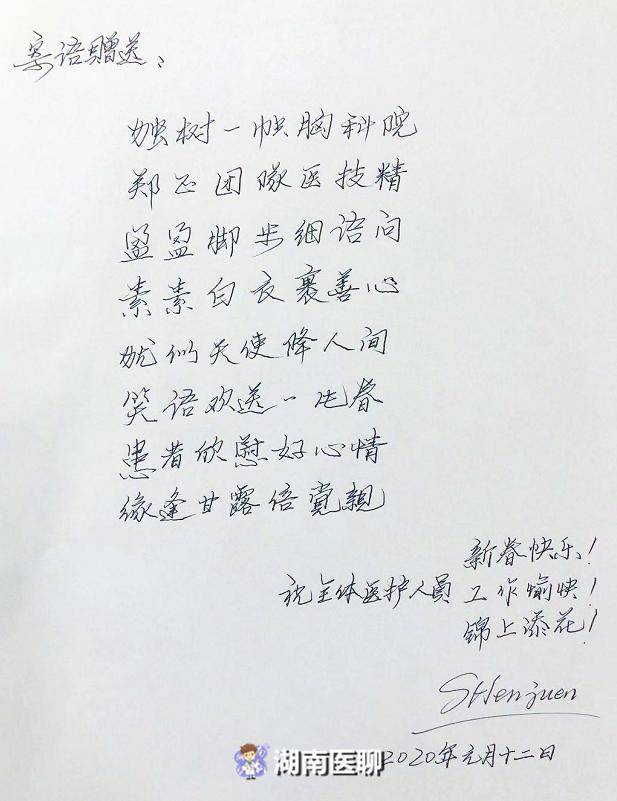 寄语赠送：
独树一帜脑科院
郑正团队医技精
盈盈脚步细语问
素素白衣裹善心
犹似天使降人间
笑语欢送一屯春
患者欣慰好心情
缘逢甘露倍觉親
新春快乐！
祝全体医护人员 工作愉快！
锦上添花！
SHenjuen
2020年元月十二日
湖南医聊